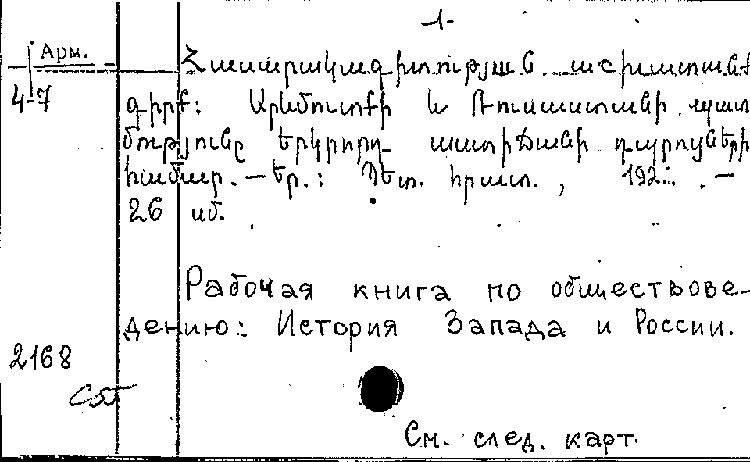 -1-
Арм.
4-7
Հասարակագիտության աշխատանքի
գիրք։ Արևմուտքի և Ռուսաստանի պատ
մությունը երկրորդ աստիճանի դպրոցների
համար. — Եր.: Պետ. հրատ., 192.. . —
26 սմ.
Рабочая книга по обществове-
дению: История Запада и России.
2168
См. след. карт.